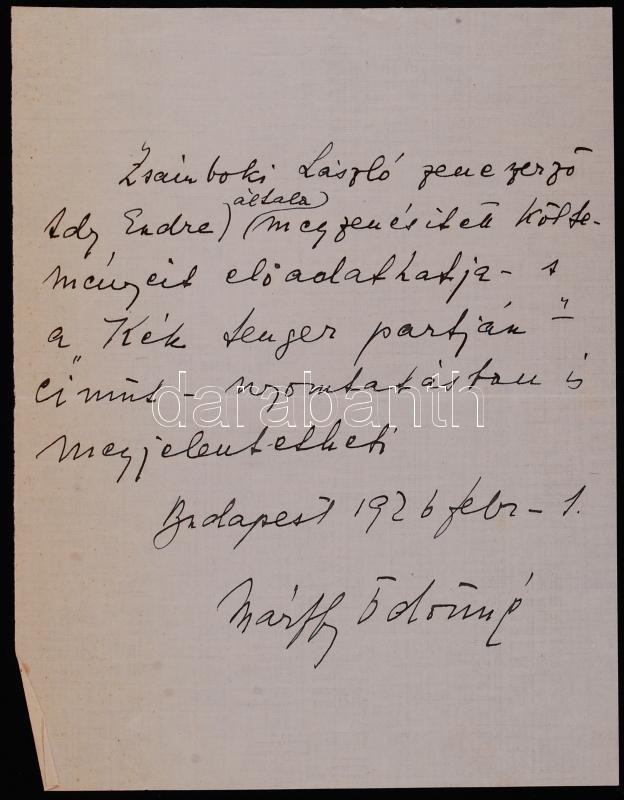 Zsámboki László zeneszerző
Ady Endre) (általa
megzenésitett Költe-
ményeit előadathatja - s
a "Kék tenger partján"
cimüt - nyomtatásban is
megjelentetheti
Budapest 1926 febr - 1.
Márffy Ödönné
darabanth